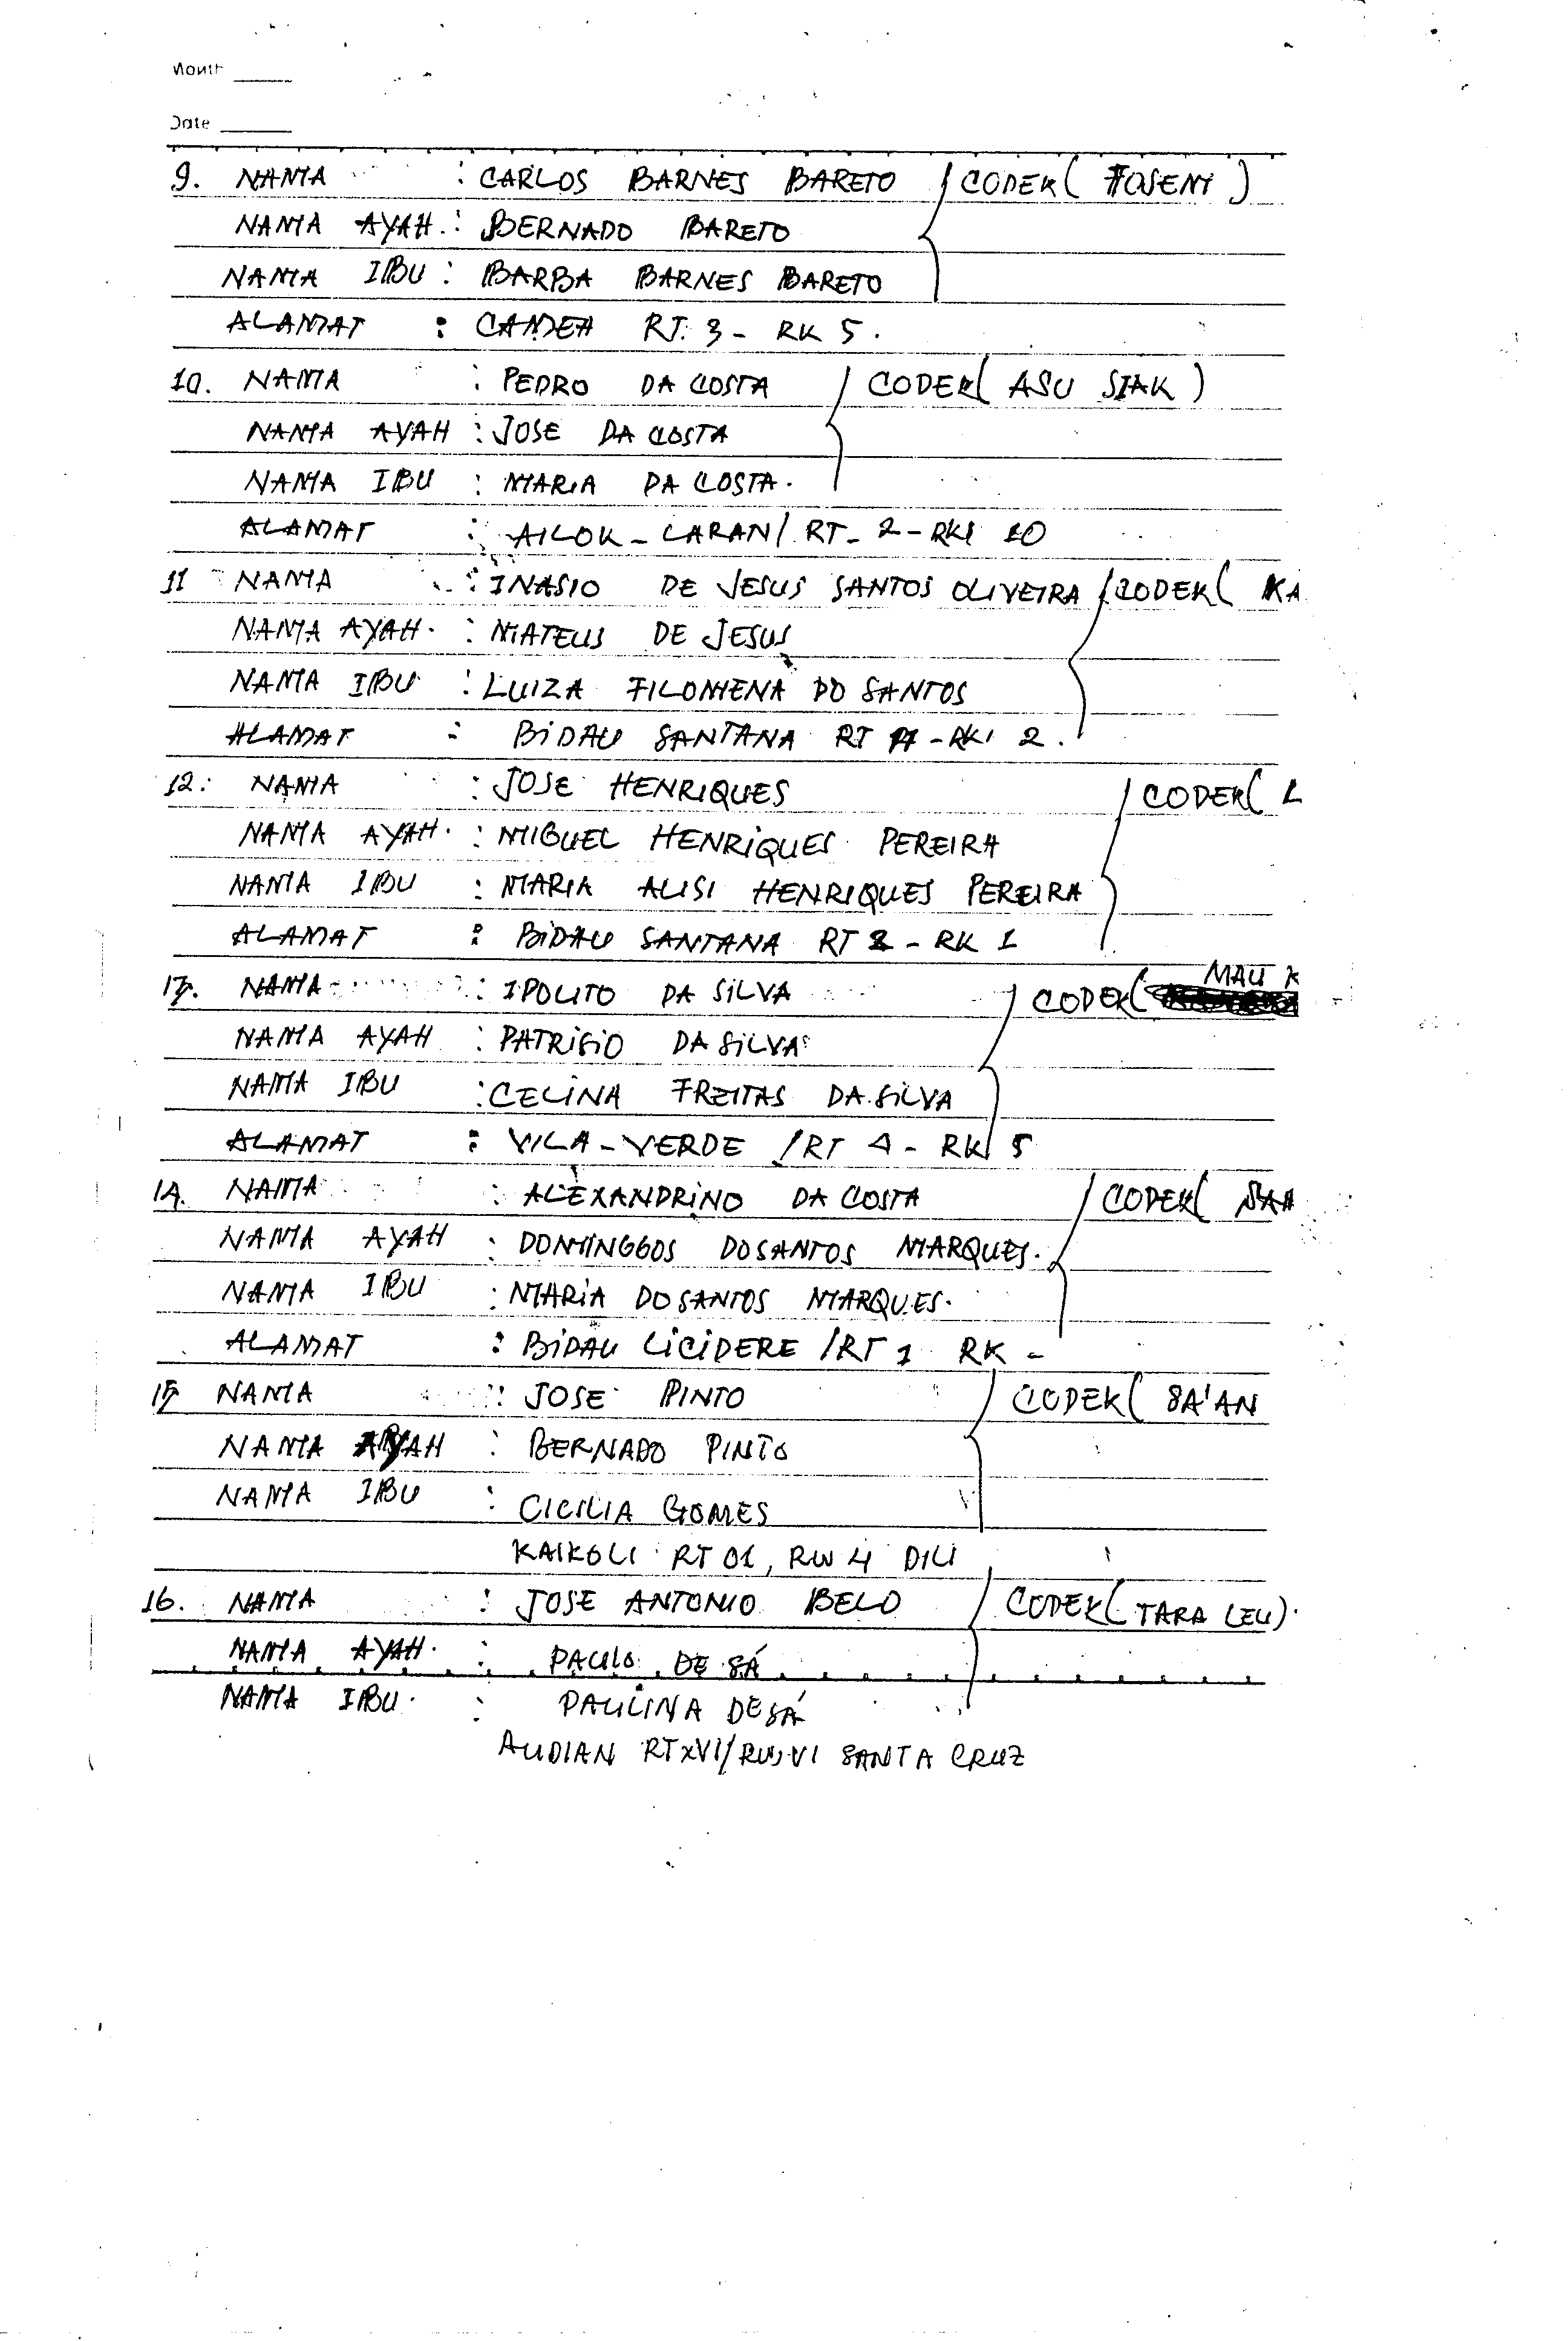 Month
Date
9. NAMA : CARLOS BARNES BARETO / CODEK ( FOSEM )
NAMA AYAH. : BERNADO BARETO
NAMA IBU : BARBA BARNES BARETO
ALAMAT : CAMEA RT. 3 - RK 5.
10. NAMA : PEDRO DA COSTA / CODEK ( ASU SIAK )
NAMA AYAH : JOSE DA COSTA
NAMA IBU : MARIA DA COSTA.
ALAMAT : AILOK - LARAN / RT - 2 - RK 10
11 NAMA : INASIO DE JESUS SANTOS OLIVEIRA / CODEK ( KA
NAMA AYAH. : MATEUS DE JESUS
NAMA IBU : LUIZA FILOMENA DO SANTOS
ALAMAT : BIDAU SANTANA RT - RK 2.
12. NAMA : JOSE HENRIQUES / CODEK ( L
NAMA AYAH. : MIGUEL HENRIQUES PEREIRA
NAMA IBU : MARIA ALISI HENRIQUES PEREIRA
ALAMAT : BIDAU SANTANA RT 2 - RK 1
13. NAMA : IPOLITO DA SILVA / CODEK ( MAU K
NAMA AYAH : PATRISIO DA SILVA
NAMA IBU : CELINA FREITAS DA SILVA
ALAMAT : VILA - VERDE / RT 4 - RK 5
14. NAMA : ALEXANDRINO DA COSTA / CODEK ( SAA
NAMA AYAH : DOMINGGOS DOSANTOS MARQUES.
NAMA IBU : MARIA DOSANTOS MARQUES.
ALAMAT : BIDAU LICIDERE / RT 1 RK -
15 NAMA : JOSE PINTO / CODEK ( SA'AN
NAMA AYAH : BERNADO PINTO
NAMA IBU : CICILIA GOMES
KAIKOLI RT 01, RW 4 DILI
16. NAMA : JOSE ANTONIO BELO / CODEK ( TARA LEU ).
NAMA AYAH. : PAULO DE SÁ
NAMA IBU. : PAULINA DE SÁ
AUDIAN RT XVI/RW VI SANTA CRUZ